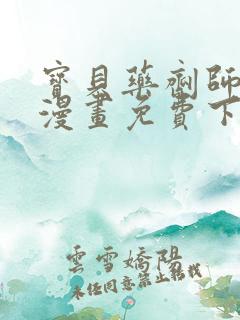 寶貝藥劑師
漫畫免費下
雲雪嬌陽
未經同意禁止轉載